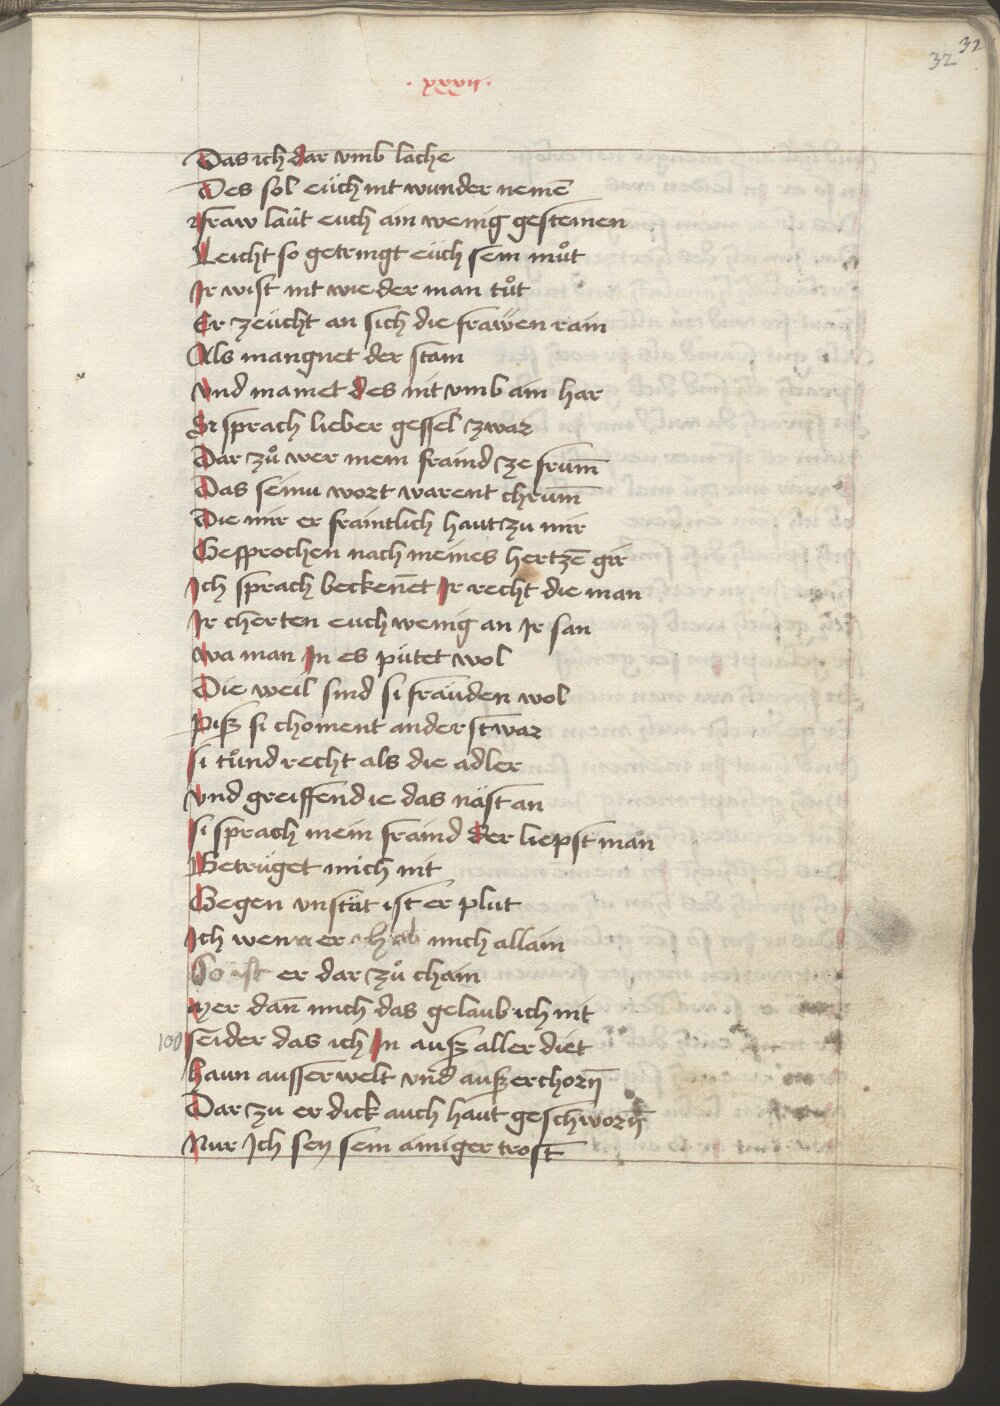 32 32
· xxxii ·
Das ich dar vmb lache
Des sol eüch nit wunder nemē
Fraw laüt euch ain wenig gestemen
Leicht so getringt eüch sein můt
Ir wist nit wie der man tůt
Er zeücht an sich die fräwen rain
Als mangnet der stain
Vnd mainet des nit vmb ain har
Si sprach lieber gessel zwar
Dar zů wer mein fraind ze frum̄
Das seinu wort warent chrum̄
Die mir er fraintlich haut zu mir
Gesprochen nach meines hertzē gir
Ich sprach beckenēt Ir recht die man
Ir cherten euch wenig an Ir san
Wa man In es pütet wol
Die weil sind si fräuden wol
Piß si choment anderstwar
Si tůnd recht als die adler
Vnd greiffend ie das näst an
Si sprach mein fraind der liepst man
Betrüget mich nit
Gegen vnstät ist er plut
Ich wenn er hab mich allain
So ist er dar zů chain
Mer dan̄ mich das gelaub ich nit
Seider das ich In auß aller diet
100
Haun ausserwelt vnd außerchorn̄
Dar zu er dick auch haut geschworn̄
Nur Ich sey sein ainiger trost